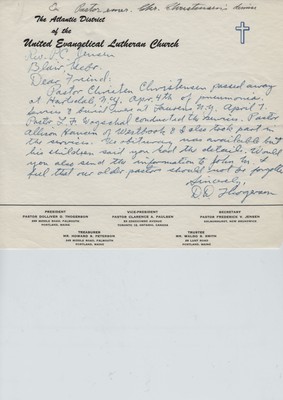 The Atlantic District
of the
United Evangelical Lutheran Church
Rev. P. C. Jensen
Blair, Nebr.
Dear Friend:
Pastor Christen Christensen passed away
at Hartsdale, N.Y. Apr. 4th of pneumonia.
Service & burial was at N.Y. April 7.
Pastor L. F. conducted the service. Pastor
Allison Hansen of also took part in
the service. No obituary was available but
his children said you had the details. Would
you also send the information to John M. I
feel that our older pastors should not be forgotten
Sincerely,
D.D. Thogerson
PRESIDENT
PASTOR DOLLIVER D. THOGERSON
MIDDLE ROAD, FALMOUTH
PORTLAND, MAINE
VICE-PRESIDENT
PASTOR CLARENCE S. PAULSEN
AVENUE
TORONTO ONTARIO, CANADA
SECRETARY
PASTOR FREDERICK V. JENSEN
NEW BRUNSWICK
TREASURER
MR. HOWARD R. PETERSON
MIDDLE ROAD, FALMOUTH
PORTLAND, MAINE
TRUSTEE
MR. WALDO R. SMITH
ROAD
PORTLAND, MAINE